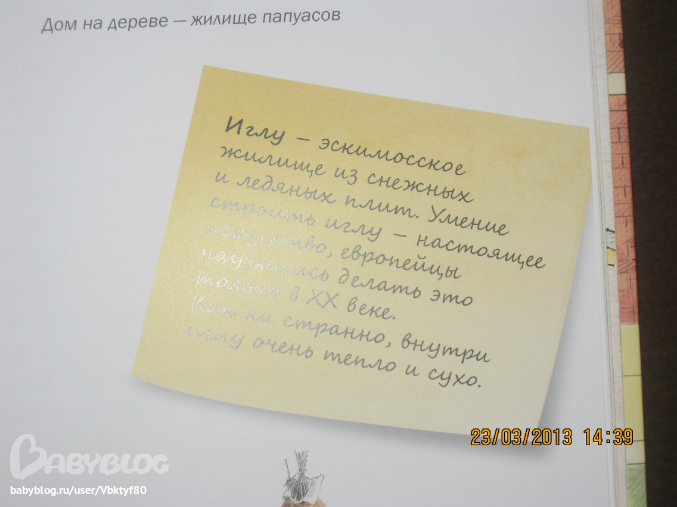 Дом на дереве — жилище папуасов
Иглу — эскимосское
жилище из снежных
и ледяных плит. Умение
строить иглу — настоящее
искусство, европейцы
научились делать это
только в XX веке.
Как ни странно, внутри
иглу очень тепло и сухо.
23/03/2013 14:39
BABYBLOG
babyblog.ru/user/Vbktyf80